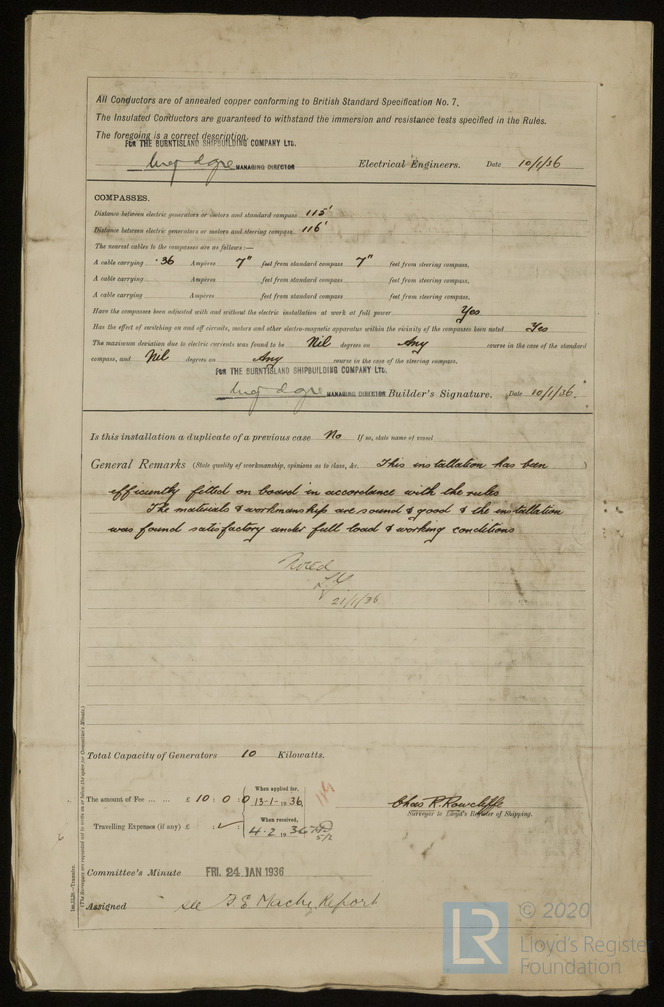 All Conductors are of annealed copper conforming to British Standard Specification No. 7.
The Insulated Conductors are guaranteed to withstand the immersion and resistance tests specified in the Rules.
The foregoing is a correct description.
FOR THE BURNTISLAND SHIPBUILDING COMPANY LTD.
MANAGING DIRECTOR Electrical Engineers. Date 10/1/36
COMPASSES.
Distance between electric generators or motors and standard compass 115'
Distance between electric generators or motors and steering compass 116'
The nearest cables to the compasses are as follows:—
A cable carrying .36 Ampères 7" feet from standard compass 7" feet from steering compass.
A cable carrying Ampères feet from standard compass feet from steering compass.
A cable carrying Ampères feet from standard compass feet from steering compass.
Have the compasses been adjusted with and without the electric installation at work at full power Yes
Has the effect of switching on and off circuits, motors and other electro-magnetic apparatus within the vicinity of the compasses been noted Yes
The maximum deviation due to electric currents was found to be Nil degrees on Any course in the case of the standard
compass, and Nil degrees on Any course in the case of the steering compass.
FOR THE BURNTISLAND SHIPBUILDING COMPANY LTD.
MANAGING DIRECTOR Builder's Signature. Date 10/1/36.
Is this installation a duplicate of a previous case No If so, state name of vessel
General Remarks (State quality of workmanship, opinions as to class, &c. This installation has been
efficiently fitted on board in accordance with the rules
The materials & workmanship are sound & good & the installation
was found satisfactory under full load & working conditions
Noted
21/1/36
Total Capacity of Generators 10 Kilowatts.
The amount of Fee ... ... £ 10 : 0 : 0 When applied for, 13-1-1936.
Travelling Expenses (if any) £ : : When received, 4.2.1936
5/2
Chas R. Rowcliffe
Surveyor to Lloyd's Register of Shipping.
Committee's Minute FRI. 24 JAN 1936
Assigned see F.E. Machy Report
(The Surveyors are requested not to write on or below the space for Committee's Minute.)
© 2020
LR
Lloyd's Register
Foundation